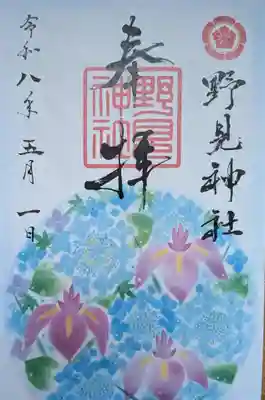 野見神社
奉拝
野見
神社
令和八年五月一日